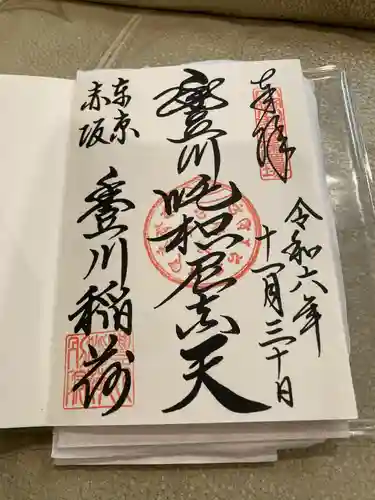 奉拝
令和六年
十一月三十日
豐川吒枳尼真天
東京
赤坂
豐川稲荷